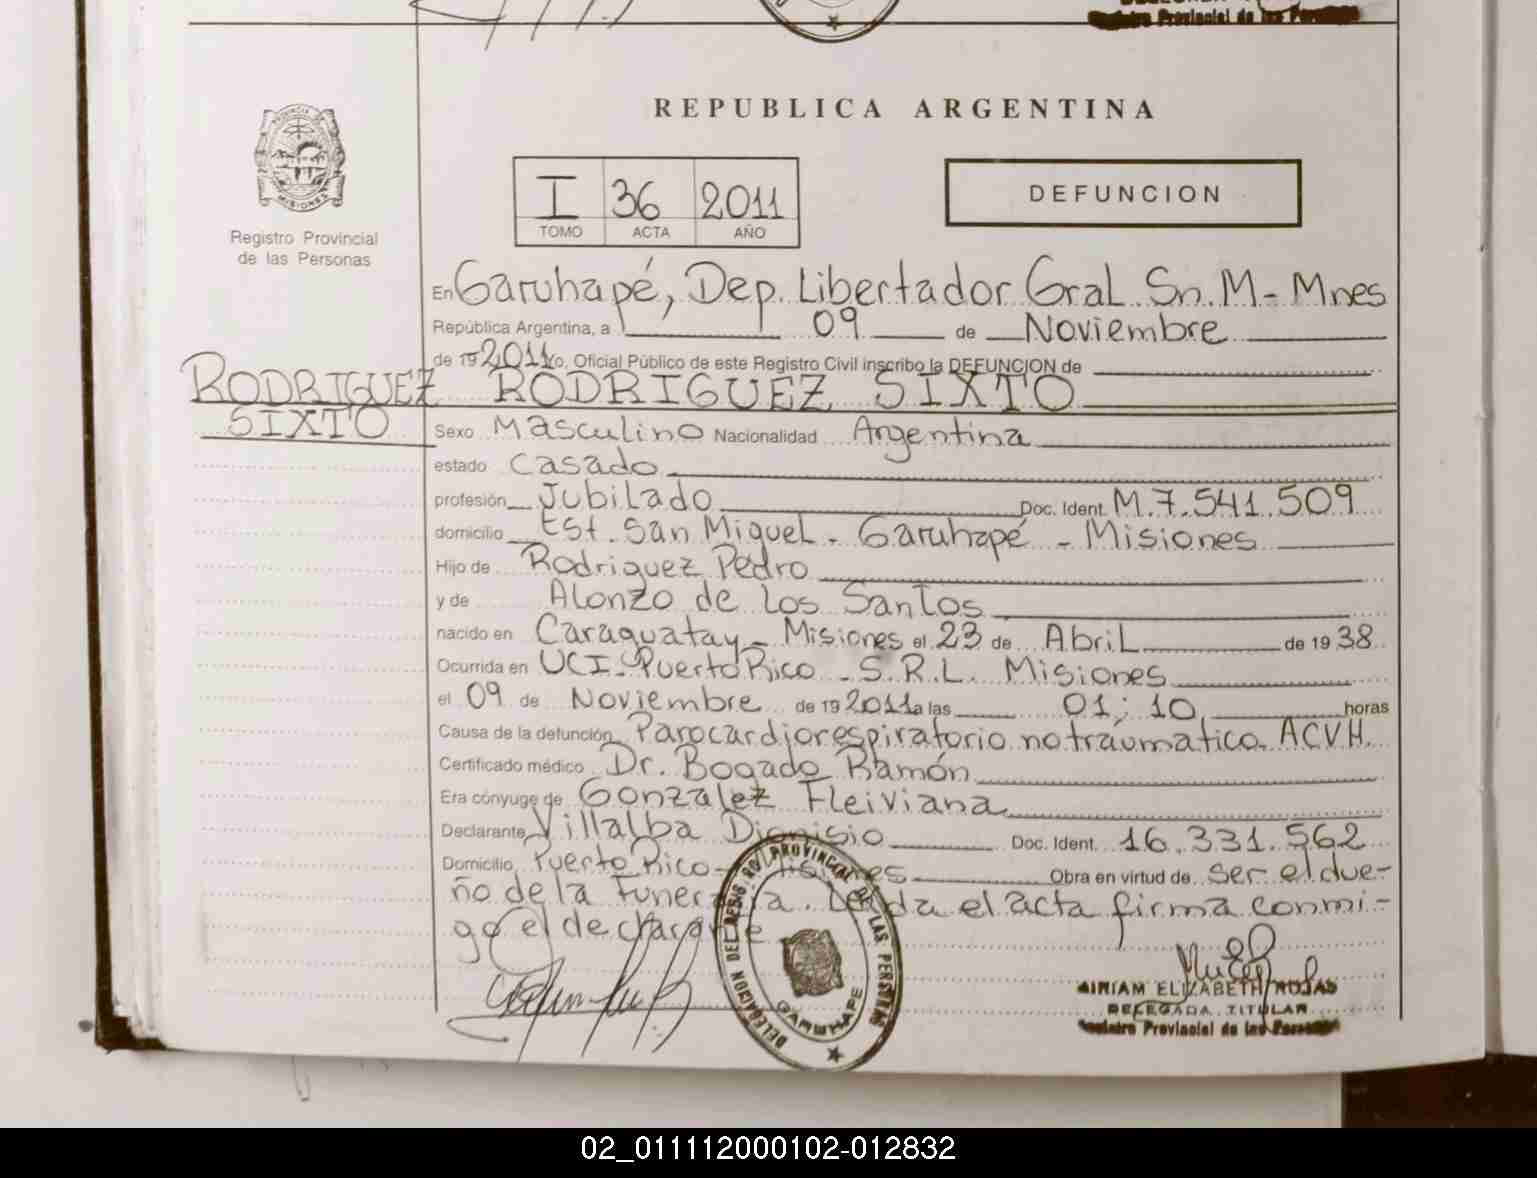 Registro Provincial de las Personas
REPUBLICA ARGENTINA
PROVINCIA DE
MISIONES
Registro Provincial
de las Personas
I 36 2011
TOMO ACTA AÑO
DEFUNCION
En Garuhapé, Dep. Libertador Gral. Sn. M - Mnes
República Argentina, a 09 de Noviembre
de 19 2011 Yo, Oficial Público de este Registro Civil inscribo la DEFUNCION de
RODRIGUEZ SIXTO
RODRIGUEZ
SIXTO
Sexo Masculino Nacionalidad Argentina
estado Casado
profesión Jubilado Doc. Ident. M.7.541.509
domicilio Est. San Miguel - Garuhapé - Misiones
Hijo de Rodriguez Pedro
y de Alonzo de los Santos
nacido en Caraguatay - Misiones el 23 de Abril de 1938
Ocurrida en UCI - Puerto Rico - S.R.L. Misiones
el 09 de Noviembre de 19 2011 a las 01:10 horas
Causa de la defunción Parocardiorespiratorio no traumatico. ACVH.
Certificado médico Dr. Bogado Ramón
Era cónyuge de Gonzalez Fleiviana
Declarante Villalba Dionisio Doc. Ident. 16.331.562
Domicilio Puerto Rico - Misiones Obra en virtud de ser el due-
ño de la Funeraria. Leida el acta firma conmi-
go el declarante
DELEGACION DEL REGISTRO PROVINCIAL DE LAS PERSONAS
GARUHAPE
MIRIAM ELIZABETH ROJAS
DELEGADA TITULAR
Registro Provincial de las Personas
02_011112000102-012832